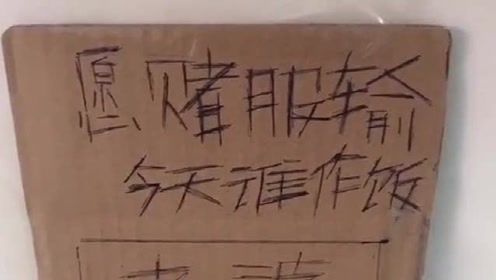 愿赌服输
今天谁作饭